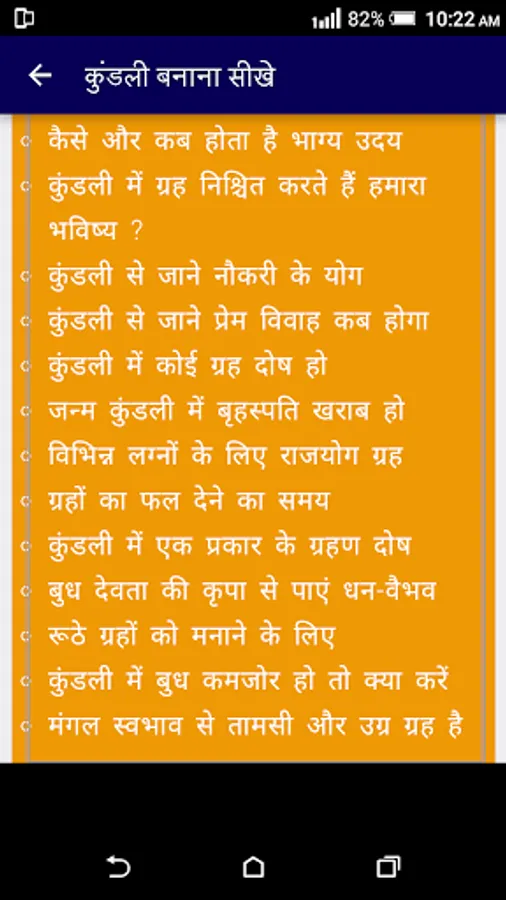 82% 10:22 AM
कुंडली बनाना सीखे
कैसे और कब होता है भाग्य उदय
कुंडली में ग्रह निश्चित करते हैं हमारा
भविष्य ?
कुंडली से जाने नौकरी के योग
कुंडली से जाने प्रेम विवाह कब होगा
कुंडली में कोई ग्रह दोष हो
जन्म कुंडली में बृहस्पति खराब हो
विभिन्न लग्नों के लिए राजयोग ग्रह
ग्रहों का फल देने का समय
कुंडली में एक प्रकार के ग्रहण दोष
बुध देवता की कृपा से पाएं धन-वैभव
रूठे ग्रहों को मनाने के लिए
कुंडली में बुध कमजोर हो तो क्या करें
मंगल स्वभाव से तामसी और उग्र ग्रह है